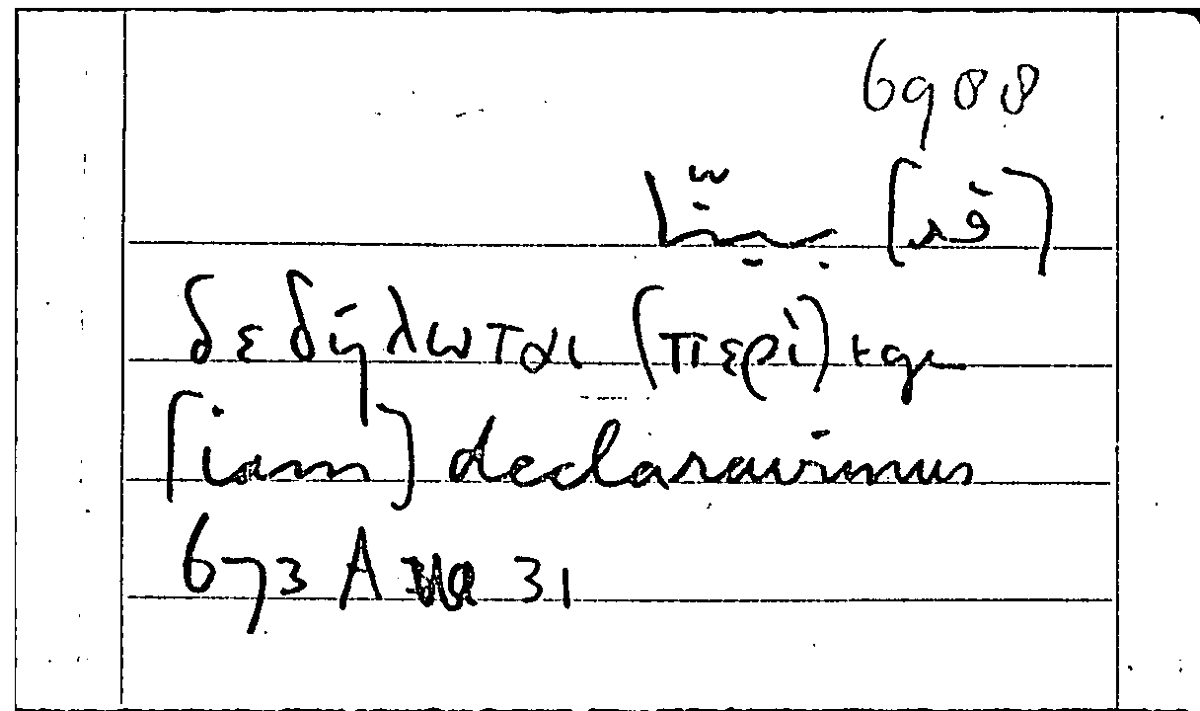 6988
بينّا (قد)
δεδήλωται (περί)
[iam] declaravimus
673 A 31